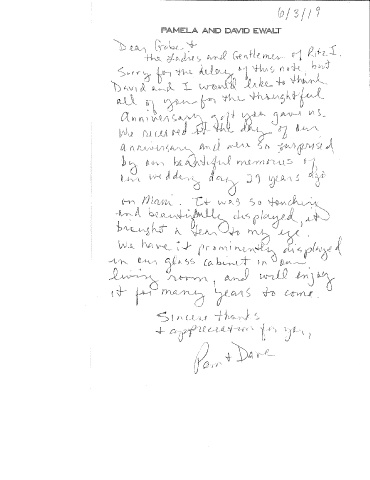 6/3/19
PAMELA AND DAVID EWALT
Dear Gabe &
the Ladies and Gentlemen of Ritz I.
Sorry for the delay of this note but
David and I would like to thank
all of you for the thoughtful
Anniversary gift you gave us.
We received it the day of our
anniversary and were so surprised
by our beautiful memories of
our wedding day 29 years ago
on Maui. It was so touching
and beautifully displayed, it
brought a tear to my eye.
We have it prominently displayed
in our glass cabinet in our
living room, and will enjoy
it for many years to come.
Sincere thanks
& appreciation for you,
Pam & Dave